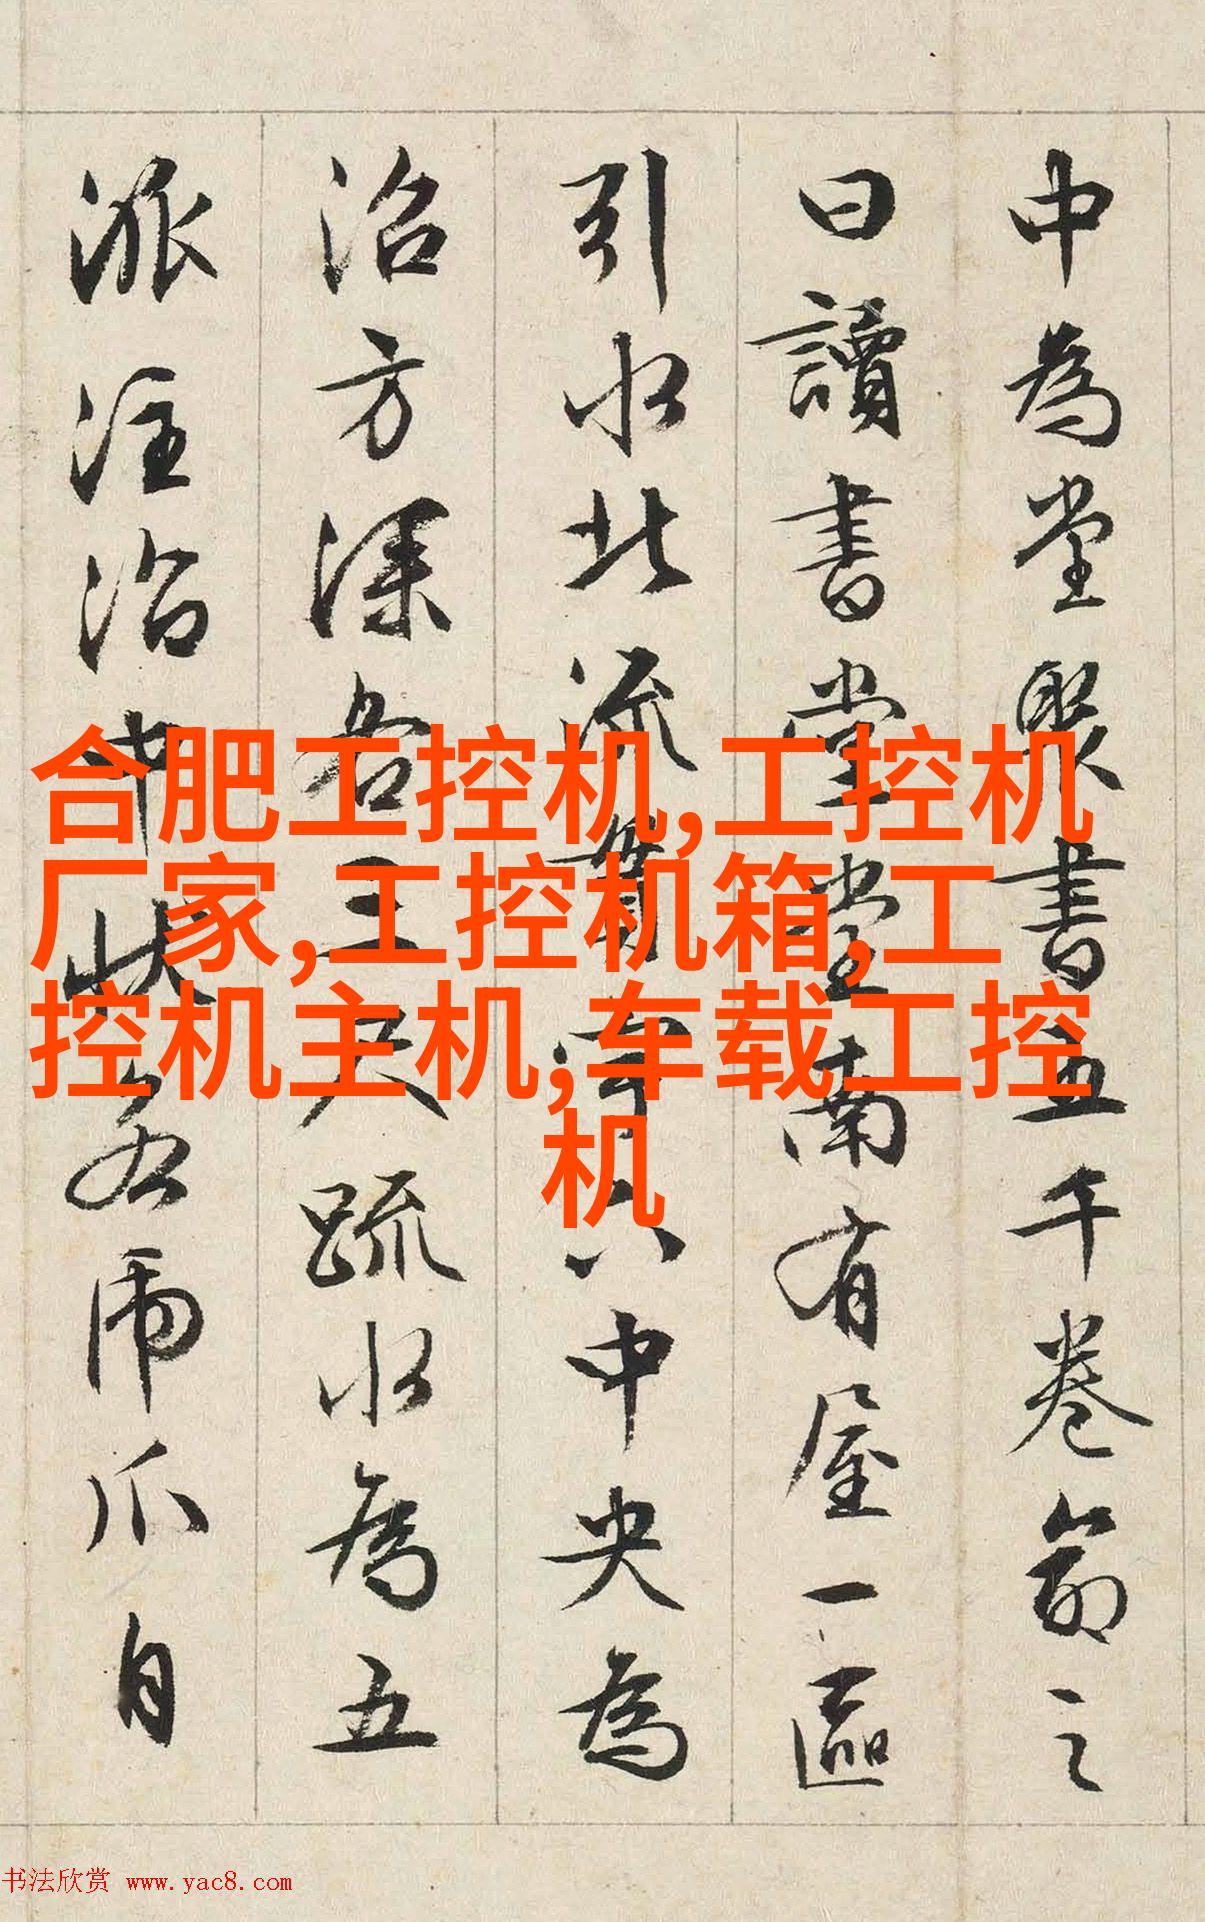 中為堂聚書五千卷命之
曰讀書堂堂南有屋一區
引水北流貫宇下中央為
沼方深各三尺疏水為五
派注沼中狀若虎爪自
合肥工控机,工控机
厂家,工控机箱,工
控机主机,车载工控
机
书法欣赏 www.yac8.com